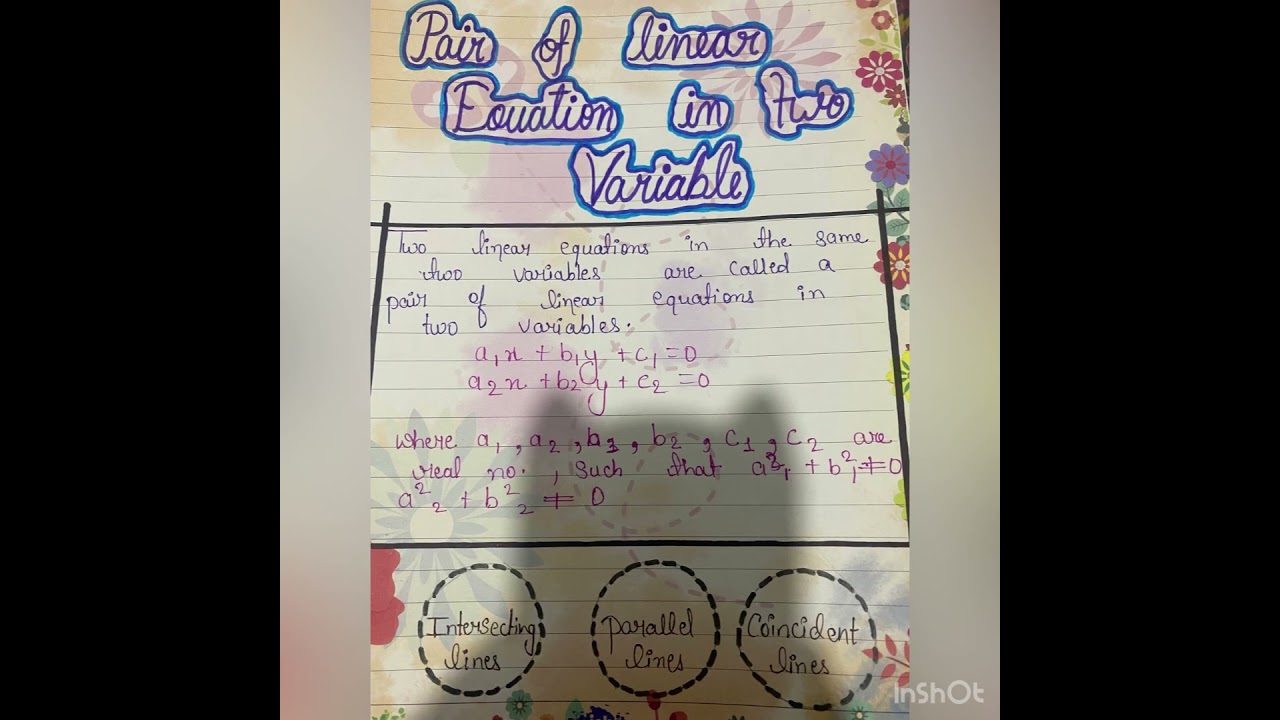 Pair of linear
Equation in two
Variable
Two linear equations in the same
two variables are called a
pair of linear equations in
two variables.
a₁x + b₁y + c₁ = 0
a₂x + b₂y + c₂ = 0
where a₁, a₂, b₁, b₂, c₁, c₂ are
real no., such that a²₁ + b²₁ ≠ 0
a²₂ + b²₂ ≠ 0
Intersecting lines
parallel lines
Coincident lines
InShOt